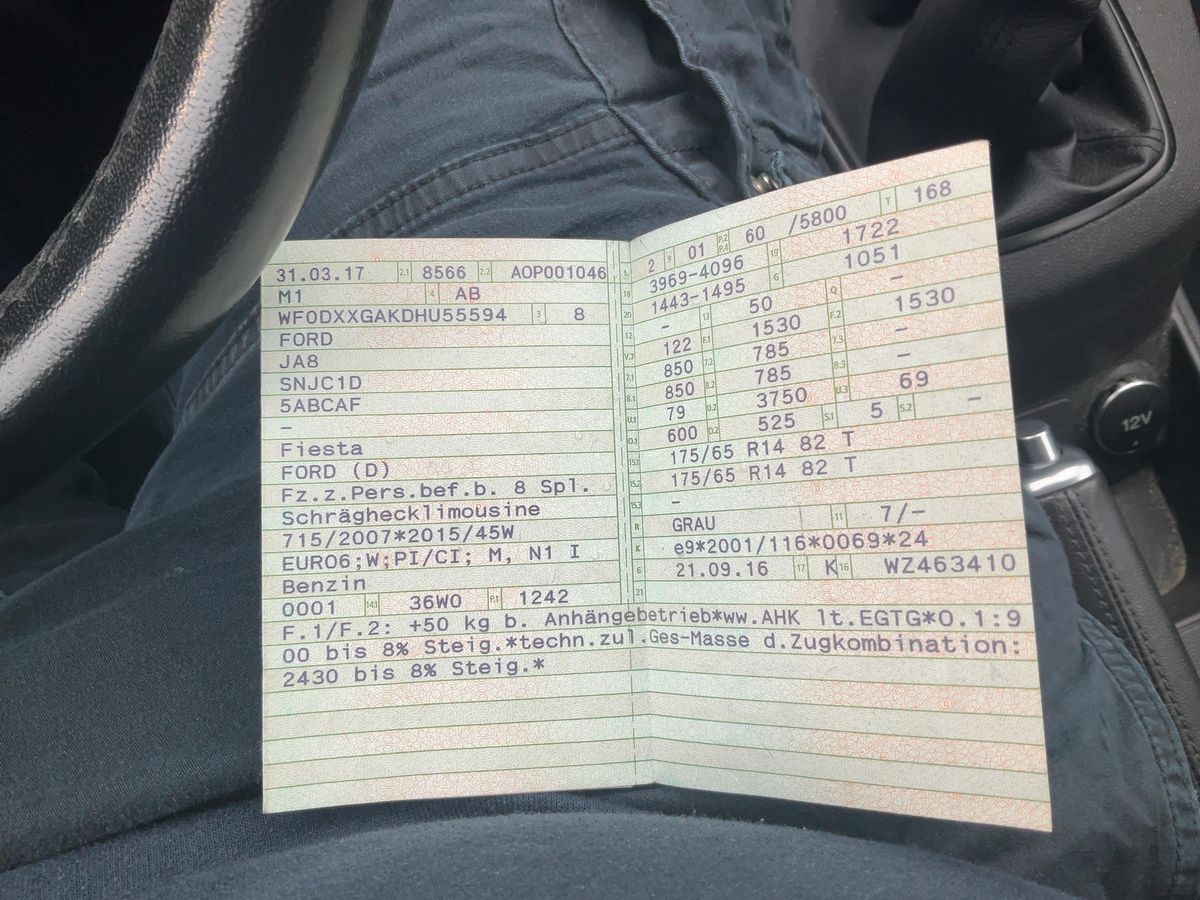 31.03.17 2.1 8566 2.2 AOP001046
M1 4 AB
WF0DXXGAKDHU55594 3 8
FORD
JA8
SNJC1D
5ABCAF
–
Fiesta
FORD (D)
Fz.z.Pers.bef.b. 8 Spl.
Schräghecklimousine
715/2007*2015/45W
EURO6;W;PI/CI; M, N1 I
Benzin
0001 14.1 36W0 P.1 1242
L 2 9 01 P.2 P.4 60 /5800 T 168
18 3969-4096 19 1722
20 1443-1495 G 1051
12 – 13 50 Q –
V.7 122 F.1 1530 F.2 1530
7.1 850 7.2 785 7.3 –
8.1 850 8.2 785 8.3 –
U.1 79 U.2 3750 U.3 69
O.1 600 O.2 525 S.1 5 S.2 –
15.1 175/65 R14 82 T
15.2 175/65 R14 82 T
15.3 –
R GRAU 11 7/–
K e9*2001/116*0069*24
6 21.09.16 17 K 16 WZ463410
21
F.1/F.2: +50 kg b. Anhängebetrieb*ww.AHK lt.EGTG*O.1:9
00 bis 8% Steig.*techn.zul.Ges-Masse d.Zugkombination:
2430 bis 8% Steig.*
12V